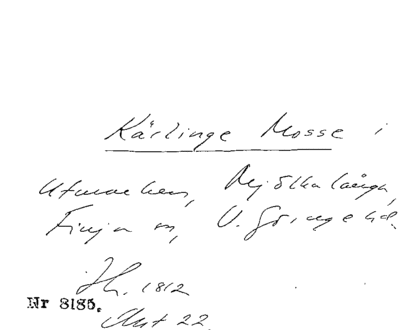 Kärlinge Mosse i
Utmarken, Mjölkalånga,
Finja sn, V. Göinge hd.
Jh. 1812
Nr 8185.
Akt 22